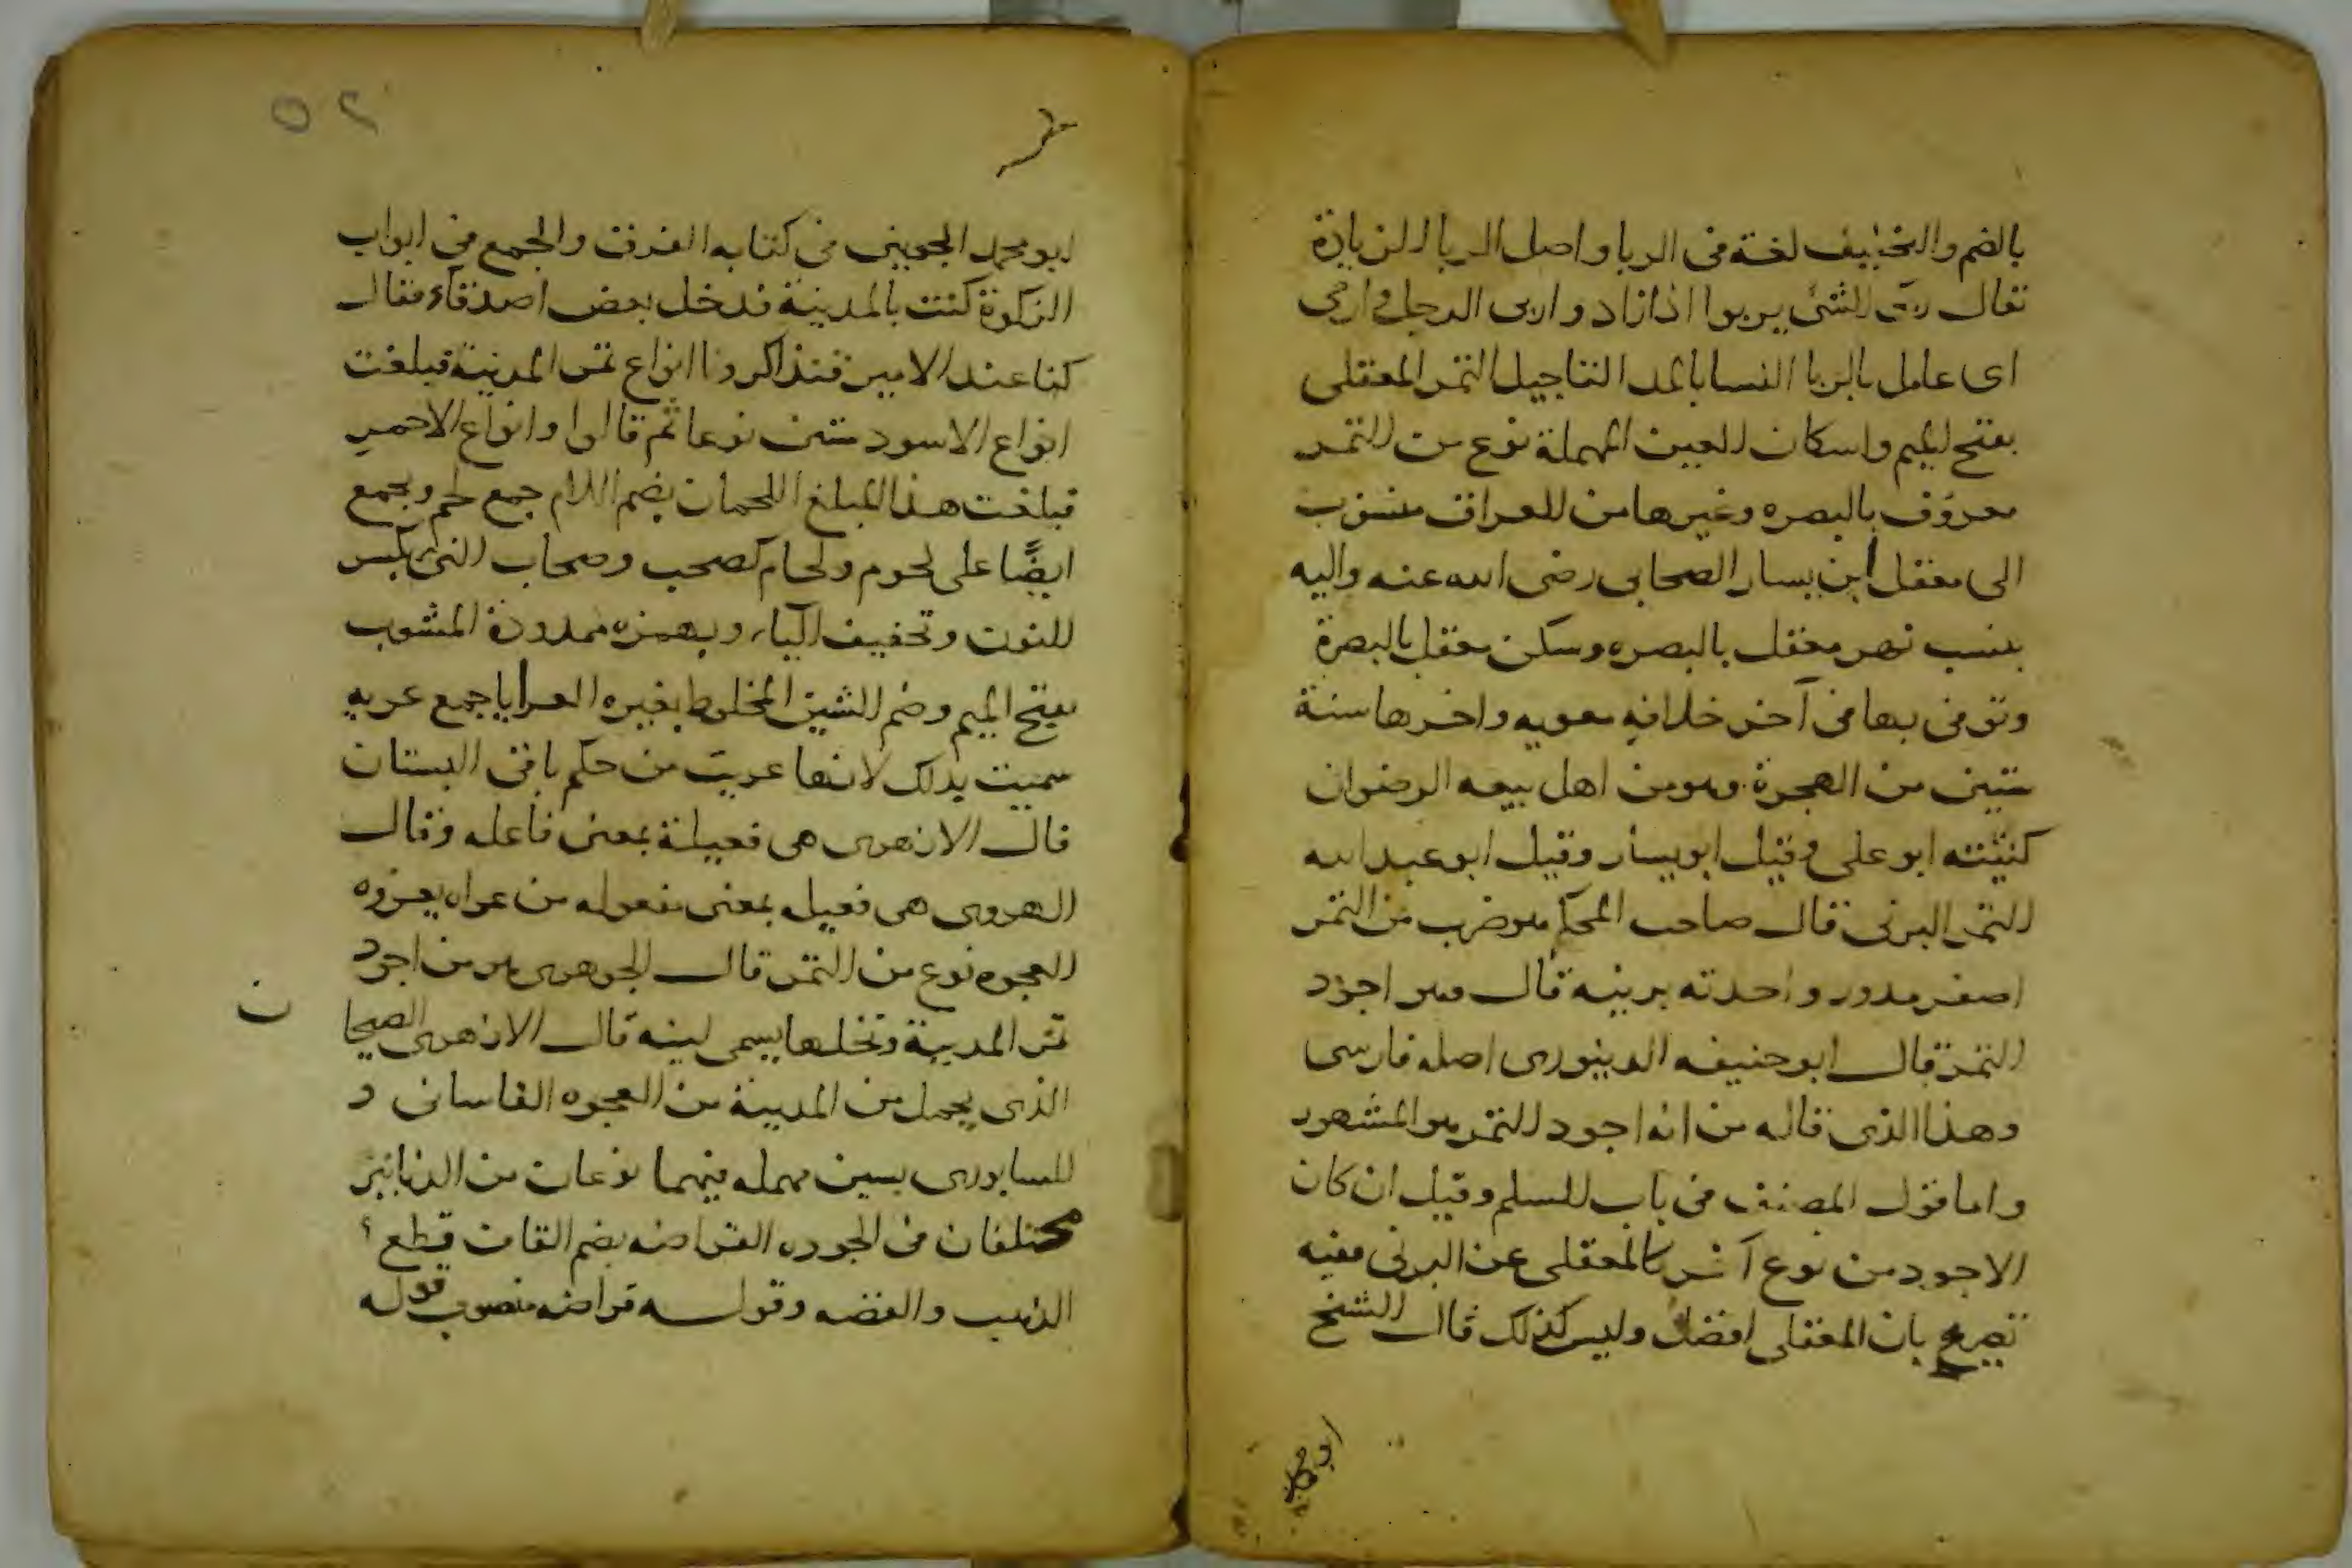 بالضم والتخفيف لغة فى الربا واصل الربا الزيادة
يقال ربى الشئ يربوا اذا زاد واربى الرجل وارمى
اى عامل بالربا النسا بالمد التاجيل التمر المعقلى
بفتح الميم واسكان العين المهملة نوع من التمر
معروف بالبصره وغيرها من العراق منسوب
الى معقل ابن يسار الصحابى رضى الله عنه واليه
ينسب نهر معقل بالبصره وسكن معقل بالبصرة
وتوفى بها فى آخر خلافه معويه واخرها سنة
ستين من الهجرة وهو من اهل بيعه الرضوان
كنيته ابو على وقيل ابو يسار وقيل ابو عبد الله
التمر البرنى قال صاحب المحكم هو ضرب من التمر
اصفر مدور واحدته برنيه قال وهو اجود
التمر قال ابو حنيفه الدينورى اصله فارسى
وهذا الذى قاله من انه اجود التمر هو المشهور
واما قول المصنف فى باب السلم وقيل ان كان
الاجود من نوع آخر كالمعقلى عن البرنى ففيه
تصريح بان المعقلى افضل وليس كذلك قال الشيخ
٥٢
ابو محمد الجوينى فى كتابه الفرق والجمع فى ابواب
الزكوة كنت بالمدينة فدخل بعض اصدقاء فقال
كنا عند الامير فتذاكرونا انواع تمر المدينة فبلغت
انواع الاسود ستين نوعا ثم قالوا وانواع الاحمر
فبلغت هذا المبلغ اللحمان بضم اللام جمع لحم ويجمع
ايضًا على لحوم ولحام كصحب وصحاب النئ بكسر
النون وتخفيف الياء وبهمزه ممدودة المشوب
بفتح الميم وضم الشين المخلوط بغيره العرايا جمع عريه
سميت بذلك لانها عريت من حكم باقى البستان
قال الازهرى هى فعيلة بمعنى فاعله وقال
الهروى هى فعيله بمعنى مفعوله من عراه يعروه
العجوه نوع من التمر قال الجوهرى هو من اجود
تمر المدينة ونخلها يسمى لينه قال الازهرى الصيحا
ن
الذى يحمل من المدينة من العجوه القاسانى و
السابورى بسين مهمله فيهما نوعان من الدنانير
مختلفان فى الجوده القراضه بضم القاف قطع
الذهب والفضه وقوله قراضه منصوب قوله